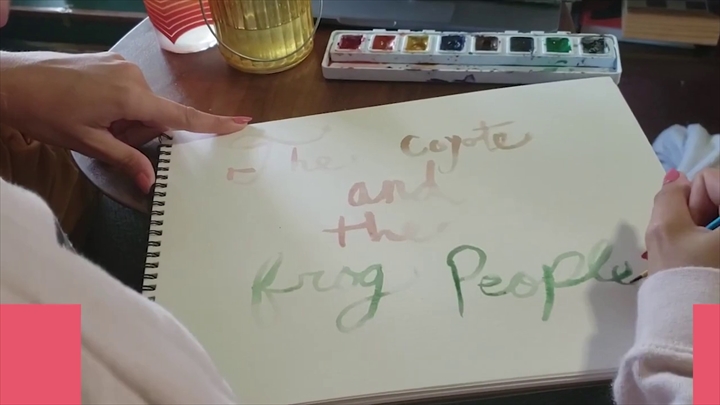 The coyote
and
the
frog People